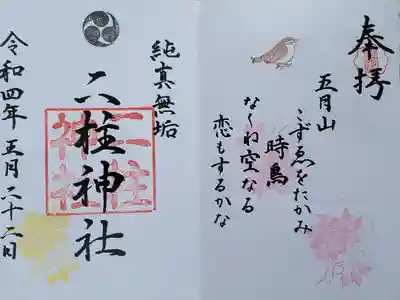 奉拝
五月山
こずゑをたかみ
時鳥
なくね空なる
恋もするかな
純真無垢
二柱神社
二柱
神社
令和四年五月二十二日